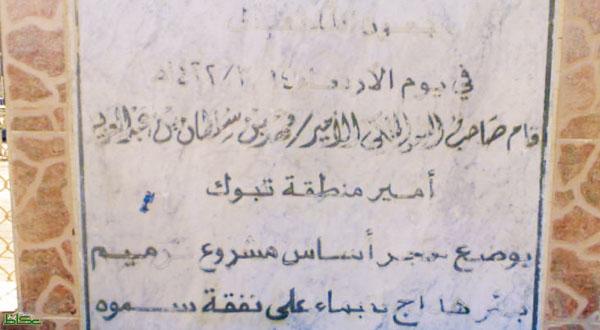 في يوم الأربعاء
قام صاحب السمو الملكي الأمير/ فهد بن سلطان بن عبدالعزيز
أمير منطقة تبوك
بوضع حجر أساس مشروع ترميم
بئر هداج بتيماء على نفقة سموه
عكاظ